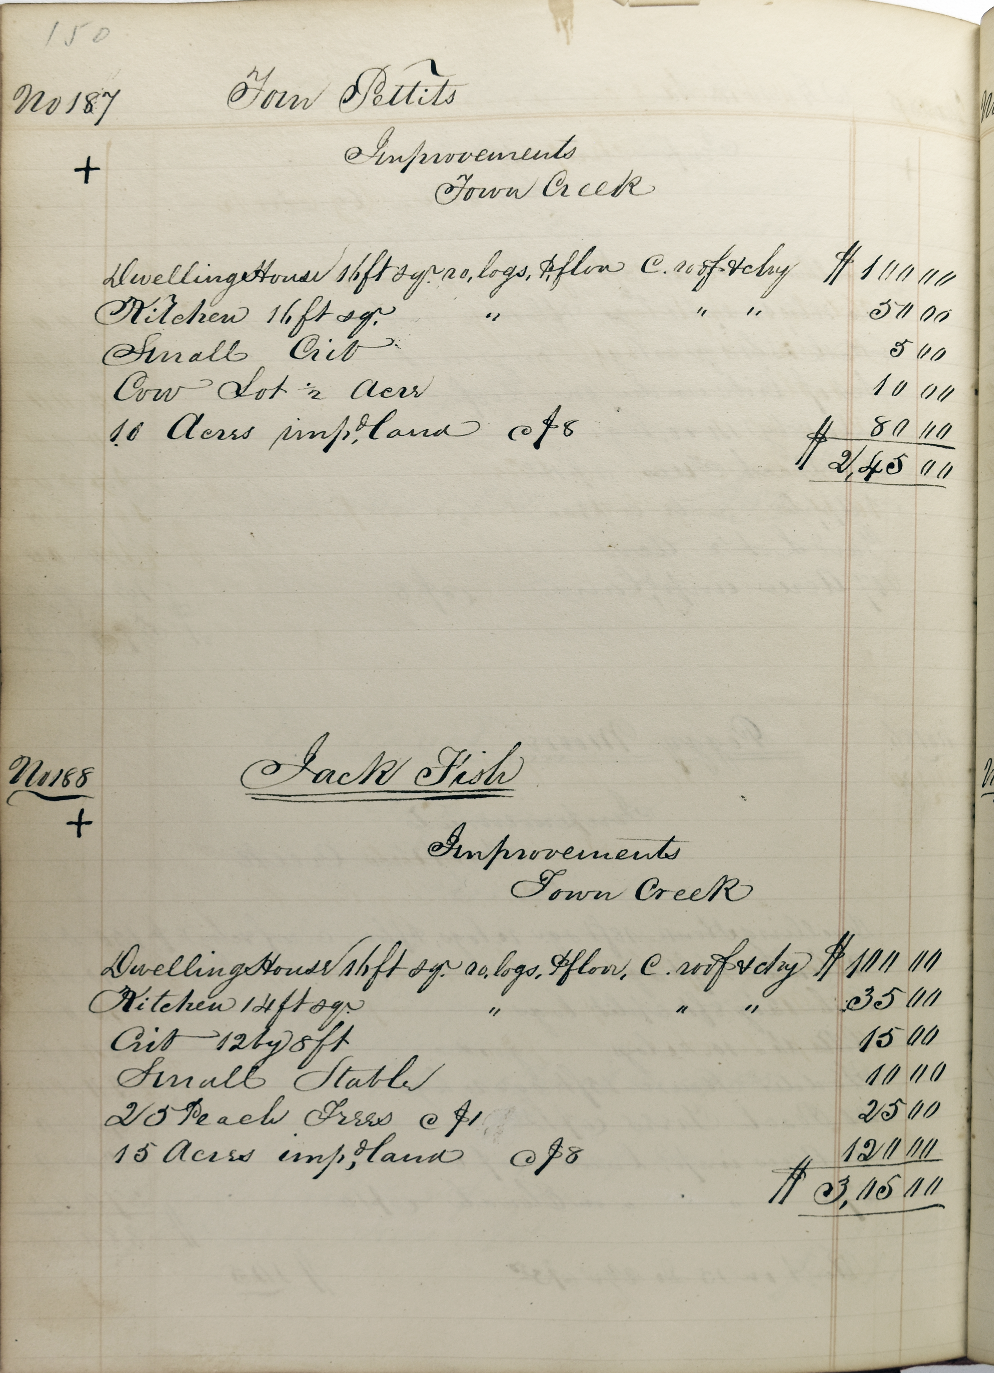 150
No 187 Tom Pettits
+
Improvements
Town Creek
Dwelling House 16 ft sqr. ro, logs, P, floor C. roof & chy $ 100 00
Kitchen 16 ft sqr. " " " 50 00
Small Crib 5 00
Cow Lot ½ Acre 10 00
10 Acres imp,d land @ $8 80 00
$ 2,45 00
No 188 Jack Fish
+
Improvements
Town Creek
Dwelling House 16 ft sqr ro, logs, P floor, C. roof & chy $ 100 00
Kitchen 14 ft sqr " " " 35 00
Crib 12 by 8 ft 15 00
Small Stable 10 00
25 Peach Trees @ $1 25 00
15 Acres imp,d land @ $8 120 00
$ 3,15 00